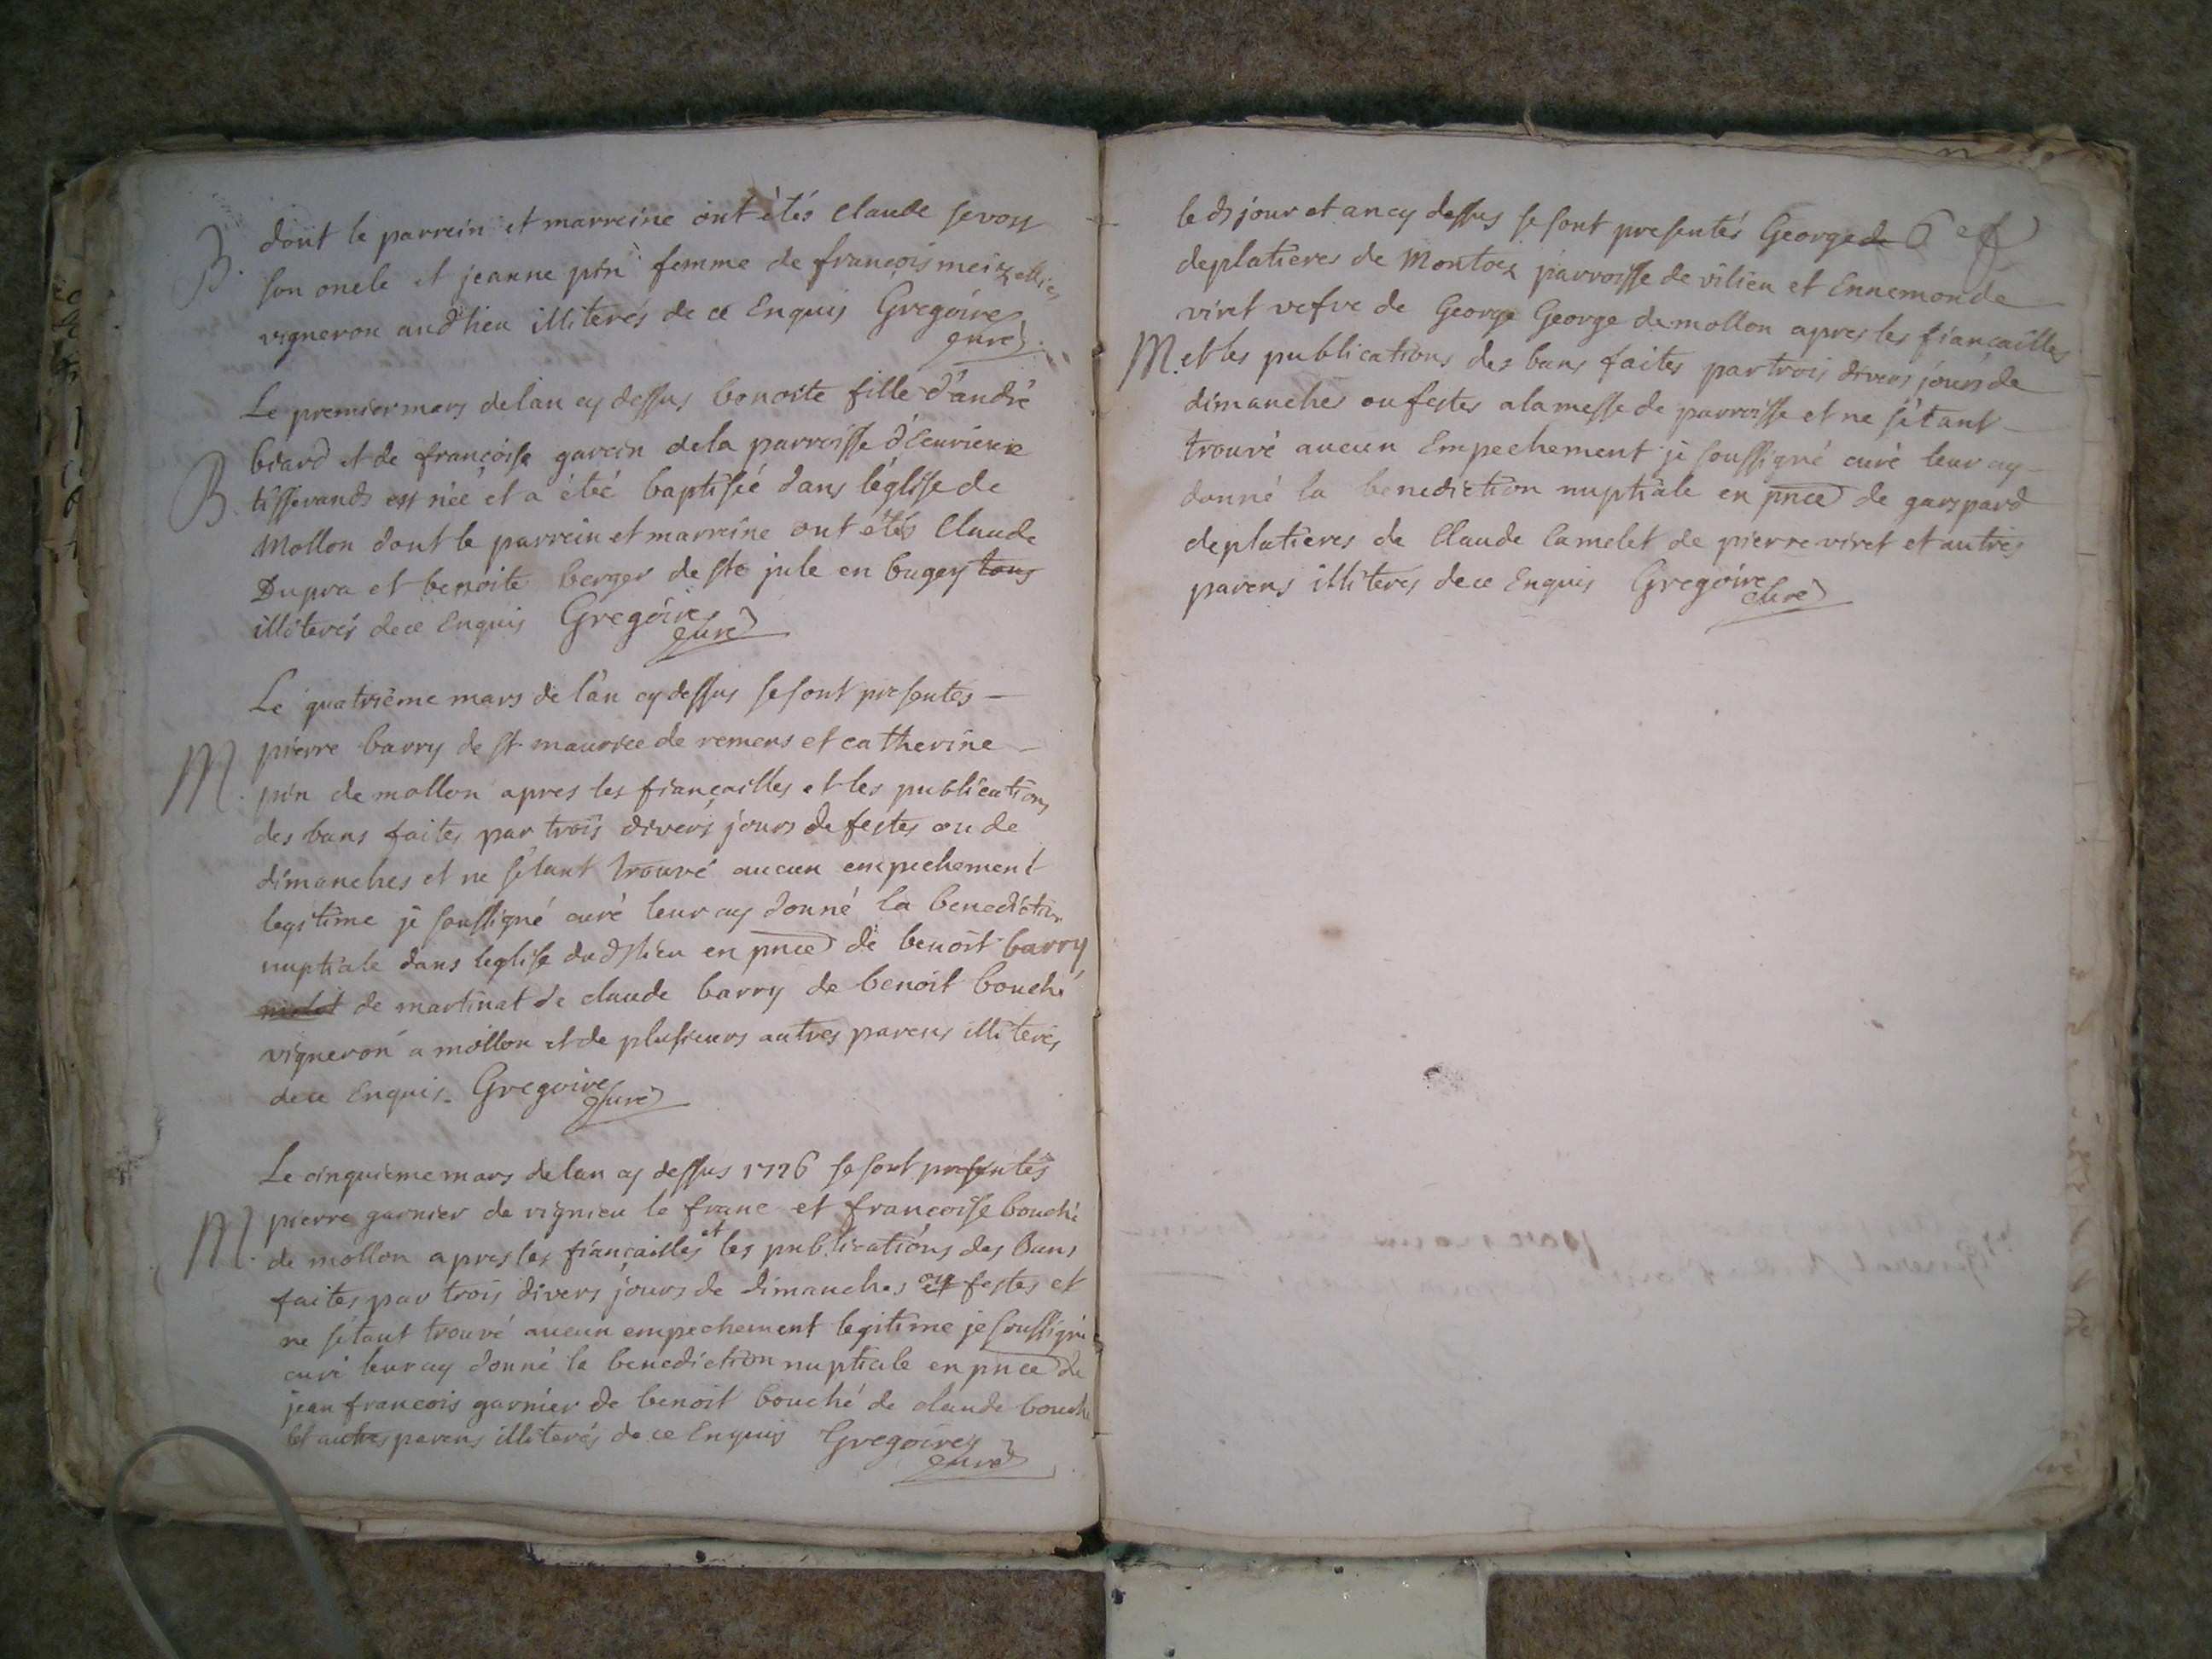 B. dont le parrein et marreine ont étés Claude
son oncle et jeanne pin femme de françois
vigneron aud lieu illiterés de ce Enquis Gregoire
curé
Le premier mars de lan cy dessus bonoite fille d'andré
biard et de françoise garcin de la parroisse d'Ecurieux
B. tisserands est néé et a étéé baptiséé dans l'église de
Mollon dont le parrein et marreine ont étés Claude
Dupra et benoite berger de ste jule en bugey tous
illiterés de ce Enquis Gregoire
curé
Le quatrième mars de l'an cy dessus se sont presentes
M. pierre barry de st maurice de remens et catherine
pin de mollon apres les fiançailles et les publications
des bans faites par trois divers jours de festes ou de
dimanches et ne sétant trouvé aucun empechement
legitime je soussigné curé leur ay donné la benediction
nuptiale dans leglise dud lieu en pnce de benoit barry
de martinat de claude barry de benoit bouché
vigneron a mollon et de plusieurs autres parens illiterés
de ce Enquis. Gregoire
curé
Le cinquieme mars de lan cy dessus 1726 se sont presentés
M. pierre garnier de vignieu le franc et francoise bouché
de mollon apres les fiançailles et les publications des bans
faites par trois divers jours de dimanches ou festes et
ne sétant trouvé aucun empechement legitime je soussigné
curé leur ay donné la benediction nuptiale en pnce de
jean francois garnier de benoit bouché de claude bouché
et autres parens illiterés de ce Enquis Gregoire
curé
led jour et an cy dessus se sont presentés George de 6e
deplatieres de Montoz parroisse de vilieu et Ennemonde
viret vefve de George George de mollon apres les fiancailles
M. et les publications des bans faites par trois divers jours de
dimanches ou festes a la messe de parroisse et ne sétant
trouvé aucun Empechement je soussigné curé leur ay
donné la benediction nuptiale en pnce de gaspard
deplatieres de Claude Camelet de pierre viret et autres
parens illiteres de ce Enquis Gregoire
curé